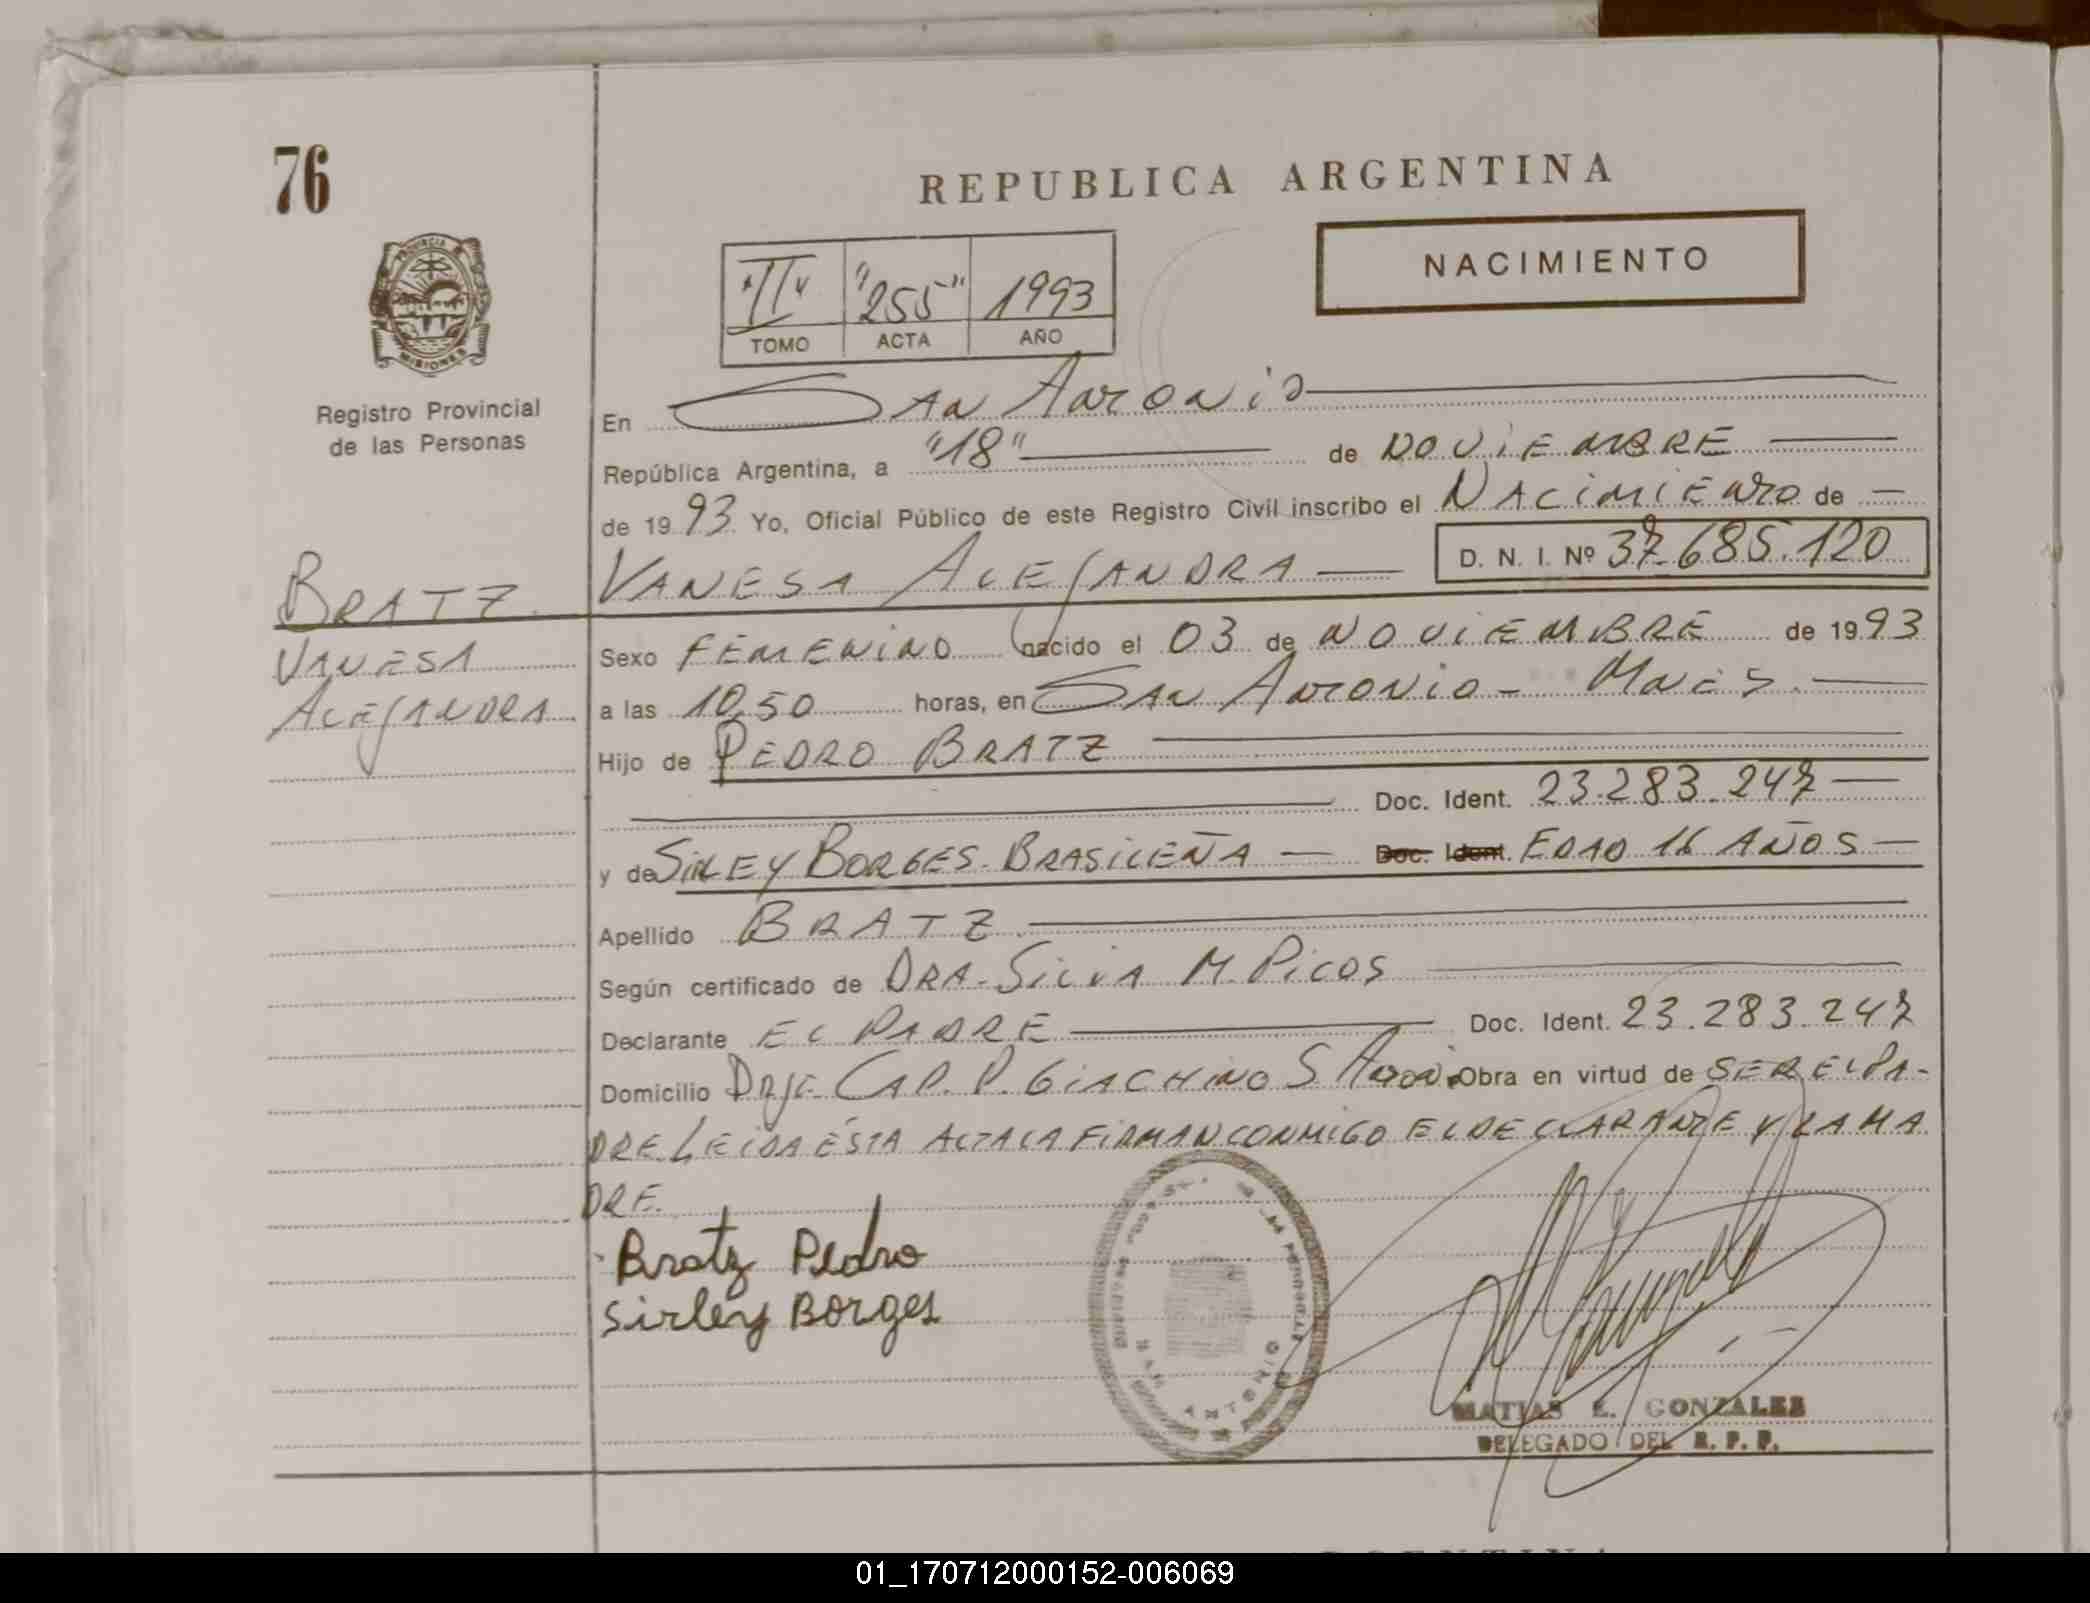 76
REPUBLICA ARGENTINA
NACIMIENTO
"II" "255" 1993
TOMO ACTA AÑO
PROVINCIA
MISIONES
Registro Provincial
de las Personas
En San Antonio
República Argentina, a "18" de NOVIEMBRE
de 1993 Yo, Oficial Público de este Registro Civil inscribo el NACIMIENTO de
VANESA ALEJANDRA D. N. I. Nº 37.685.120
BRATZ
VANESA
ALEJANDRA
Sexo FEMENINO nacido el 03 de NOVIEMBRE de 1993
a las 10,50 horas, en SAN ANTONIO - Mnes.
Hijo de PEDRO BRATZ
Doc. Ident. 23.283.247
y de SIRLEY BORGES. BRASILEÑA Doc. Ident. EDAD 16 AÑOS
Apellido BRATZ
Según certificado de DRA. SILVIA M. PICOS
Declarante EL PADRE Doc. Ident. 23.283.247
Domicilio CAP. P. GIACHINO S Obra en virtud de SER EL PA-
DRE. LEIDA ÉSTA ACTA LA FIRMAN CONMIGO EL DECLARANTE Y LA MA
DRE.
Bratz Pedro
Sirley Borges
SAN ANTONIO
MATIAS E. GONZALEZ
DELEGADO DEL R. P. P.
01_170712000152-006069